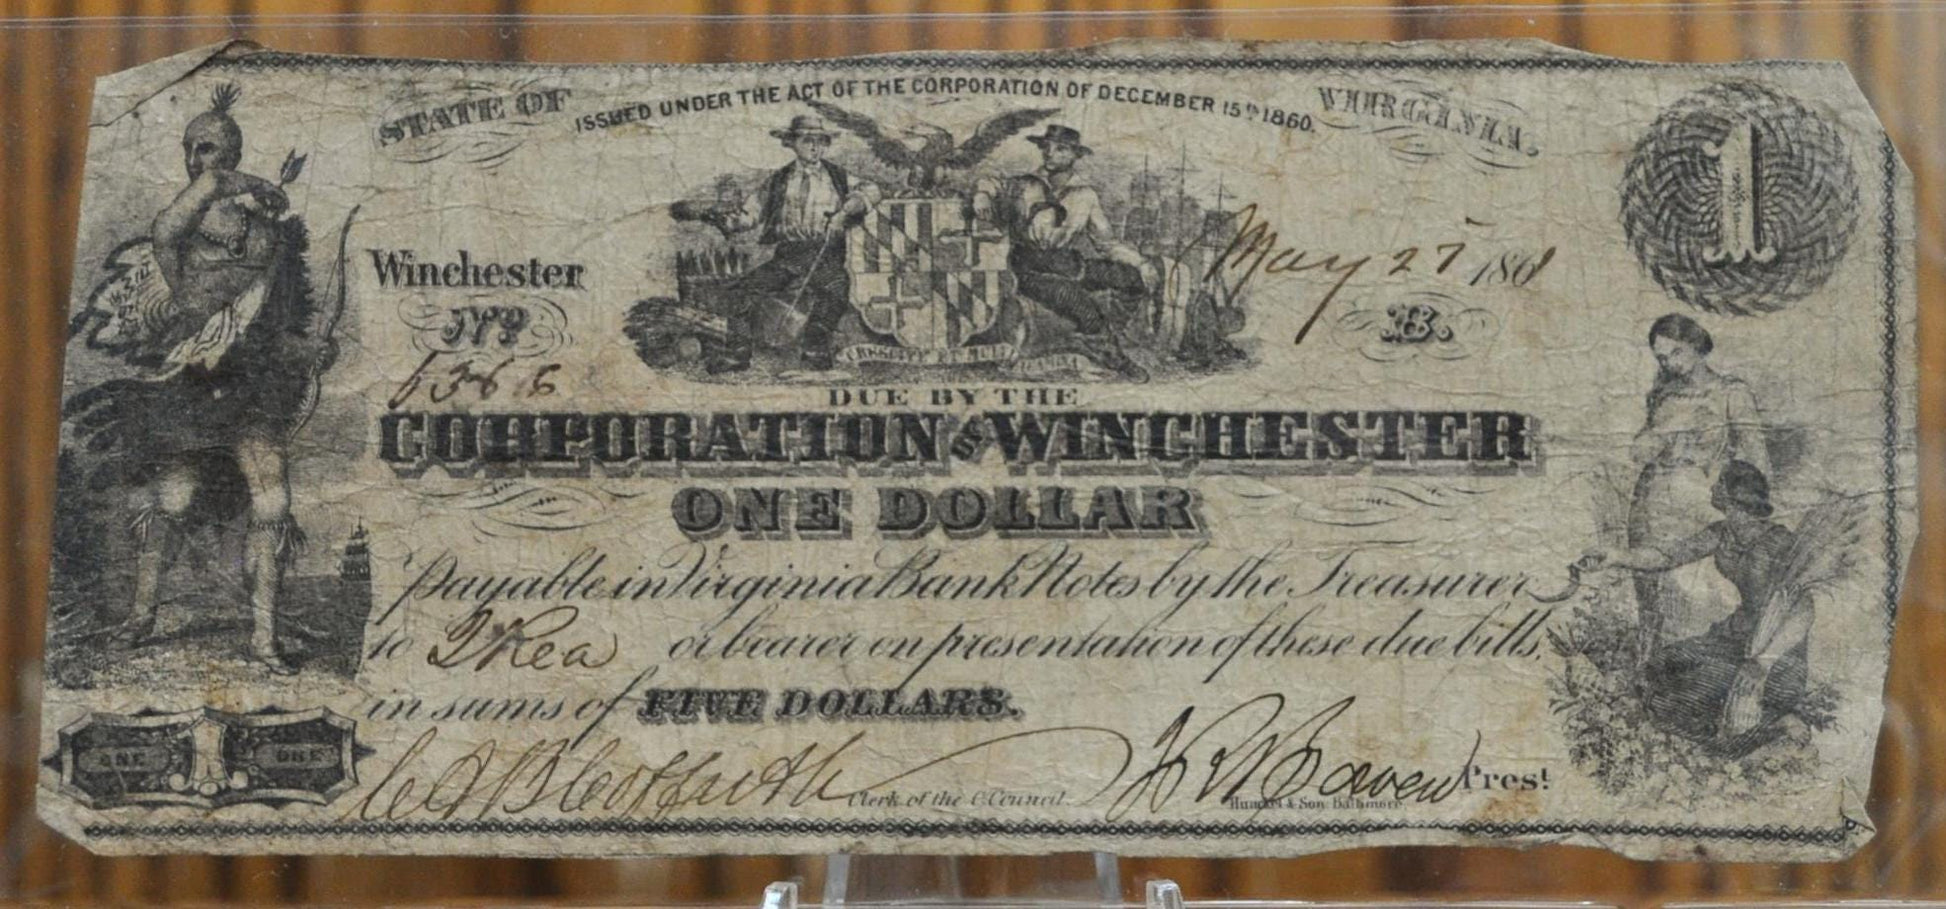 STATE OF
ISSUED UNDER THE ACT OF THE CORPORATION OF DECEMBER 15th 1860.
VIRGINIA.
1
Winchester
May 27 1861
No
B.
5366
CRESCITE ET MULTIPLICAMINI
DUE BY THE
CORPORATION OF WINCHESTER
ONE DOLLAR
Payable in Virginia Bank Notes by the Treasurer
to J Rea or bearer on presentation of these due bills,
in sums of FIVE DOLLARS.
ONE 1 ONE
Clerk of the C. Council.
Prest
& Son Baltimore